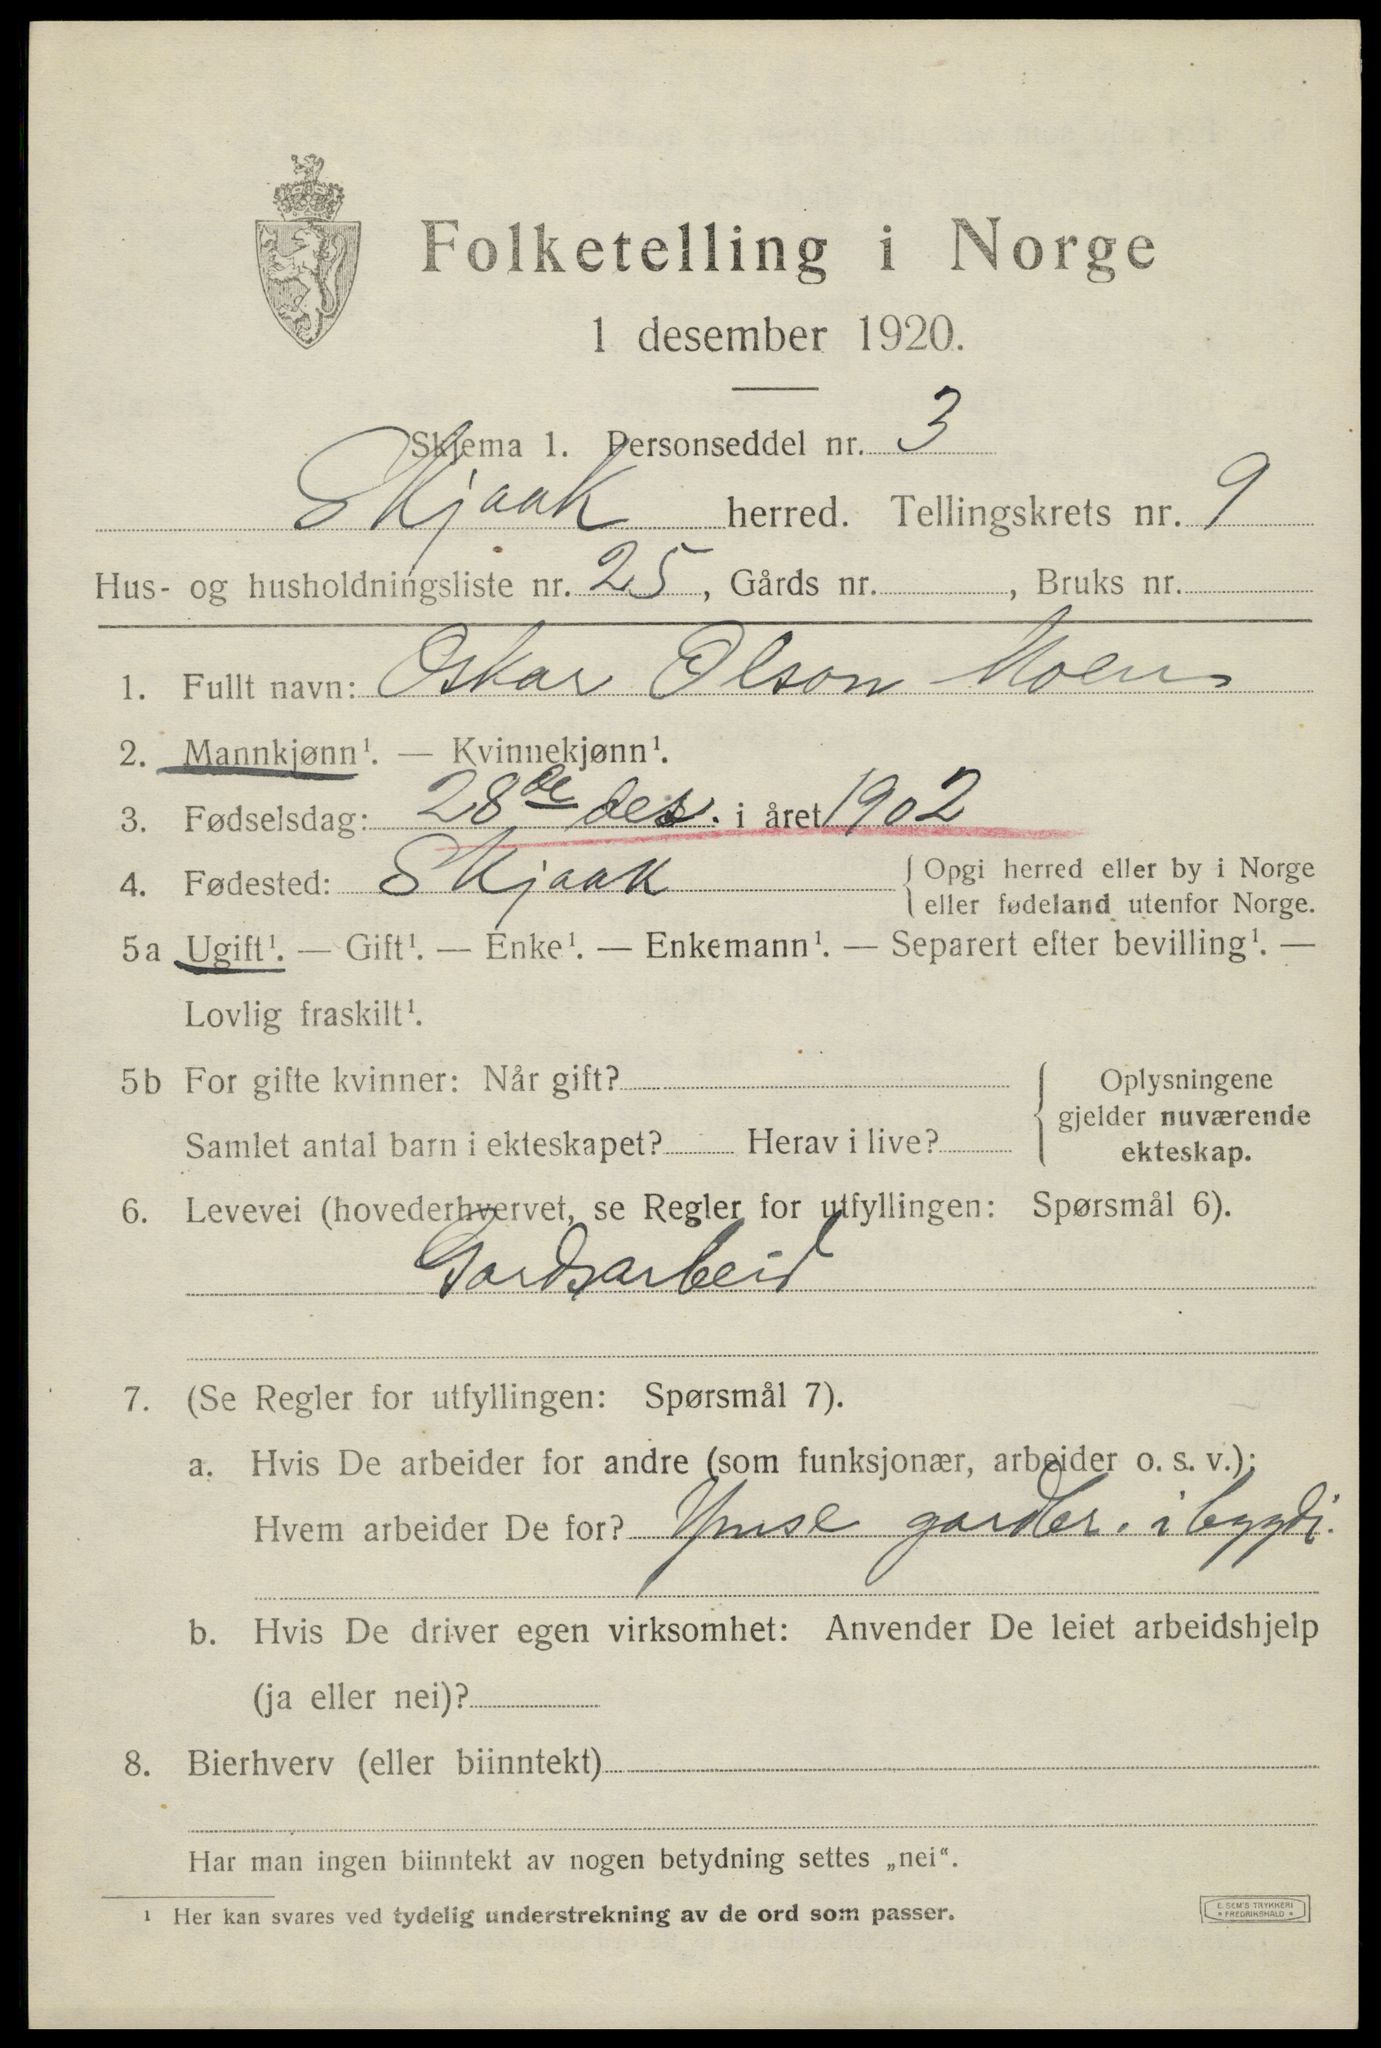 Folketelling i Norge
1 desember 1920.
Skjema 1. Personseddel nr. 3
Skjaak herred. Tellingskrets nr. 9
Hus- og husholdningsliste nr. 25, Gårds nr. , Bruks nr.
1. Fullt navn: Oskar Olson Moen
2. Mannkjønn¹. — Kvinnekjønn¹.
3. Fødselsdag: 28de des. i året 1902
4. Fødested: Skjaak { Opgi herred eller by i Norge
eller fødeland utenfor Norge.
5a Ugift¹. — Gift¹. — Enke¹. — Enkemann¹. — Separert efter bevilling¹. —
Lovlig fraskilt¹.
5b For gifte kvinner: Når gift? { Oplysningene
gjelder nuværende
Samlet antal barn i ekteskapet? Herav i live? ekteskap.
6. Levevei (hovederhvervet, se Regler for utfyllingen: Spørsmål 6).
Gardsarbeid
7. (Se Regler for utfyllingen: Spørsmål 7).
a. Hvis De arbeider for andre (som funksjonær, arbeider o. s. v.):
Hvem arbeider De for? Ymse garder. i bygdi.
b. Hvis De driver egen virksomhet: Anvender De leiet arbeidshjelp
(ja eller nei)?
8. Bierhverv (eller biinntekt)
Har man ingen biinntekt av nogen betydning settes „nei“.
¹ Her kan svares ved tydelig understrekning av de ord som passer.
E. SEM'S TRYKKERI
* FREDRIKSHALD *